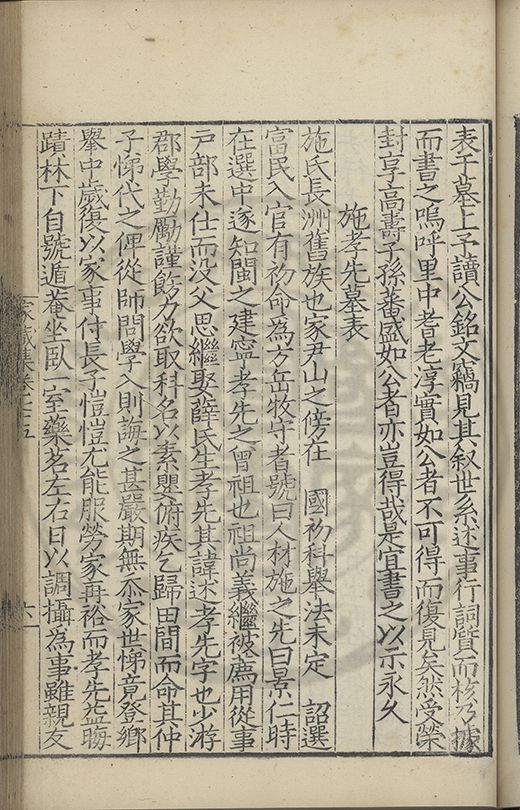 表于墓上予讀公銘文竊見其叙世系述事行詞質而核乃據
而書之嗚呼里中耆老淳實如公者不可得而復見矣然受榮
封享高壽子孫蕃盛如公者亦豈得哉是宜書之以示永久
施孝先墓表
施氏長洲舊族也家尹山之傍在 國初科舉法未定 詔選
富民入官有初命為方岳牧守者號曰人材施之先曰景仁時
在選中遂知閩之建寧孝先之曾祖也祖尚義繼被薦用從事
户部未仕而没父思繼娶薛氏生孝先其諱述孝先字也少游
郡學勤勵謹飭力欲取科名以素嬰俯疾乞歸田間而命其仲
子悌代之俾從師問學入則誨之甚嚴期無忝家世悌竟登鄉
舉中歲復以家事付長子愷愷尤能服勞家再裕而孝先益晦
蹟林下自號遁菴坐臥一室藥茗左右日以調攝為事雖親友
家藏集卷七十五
六